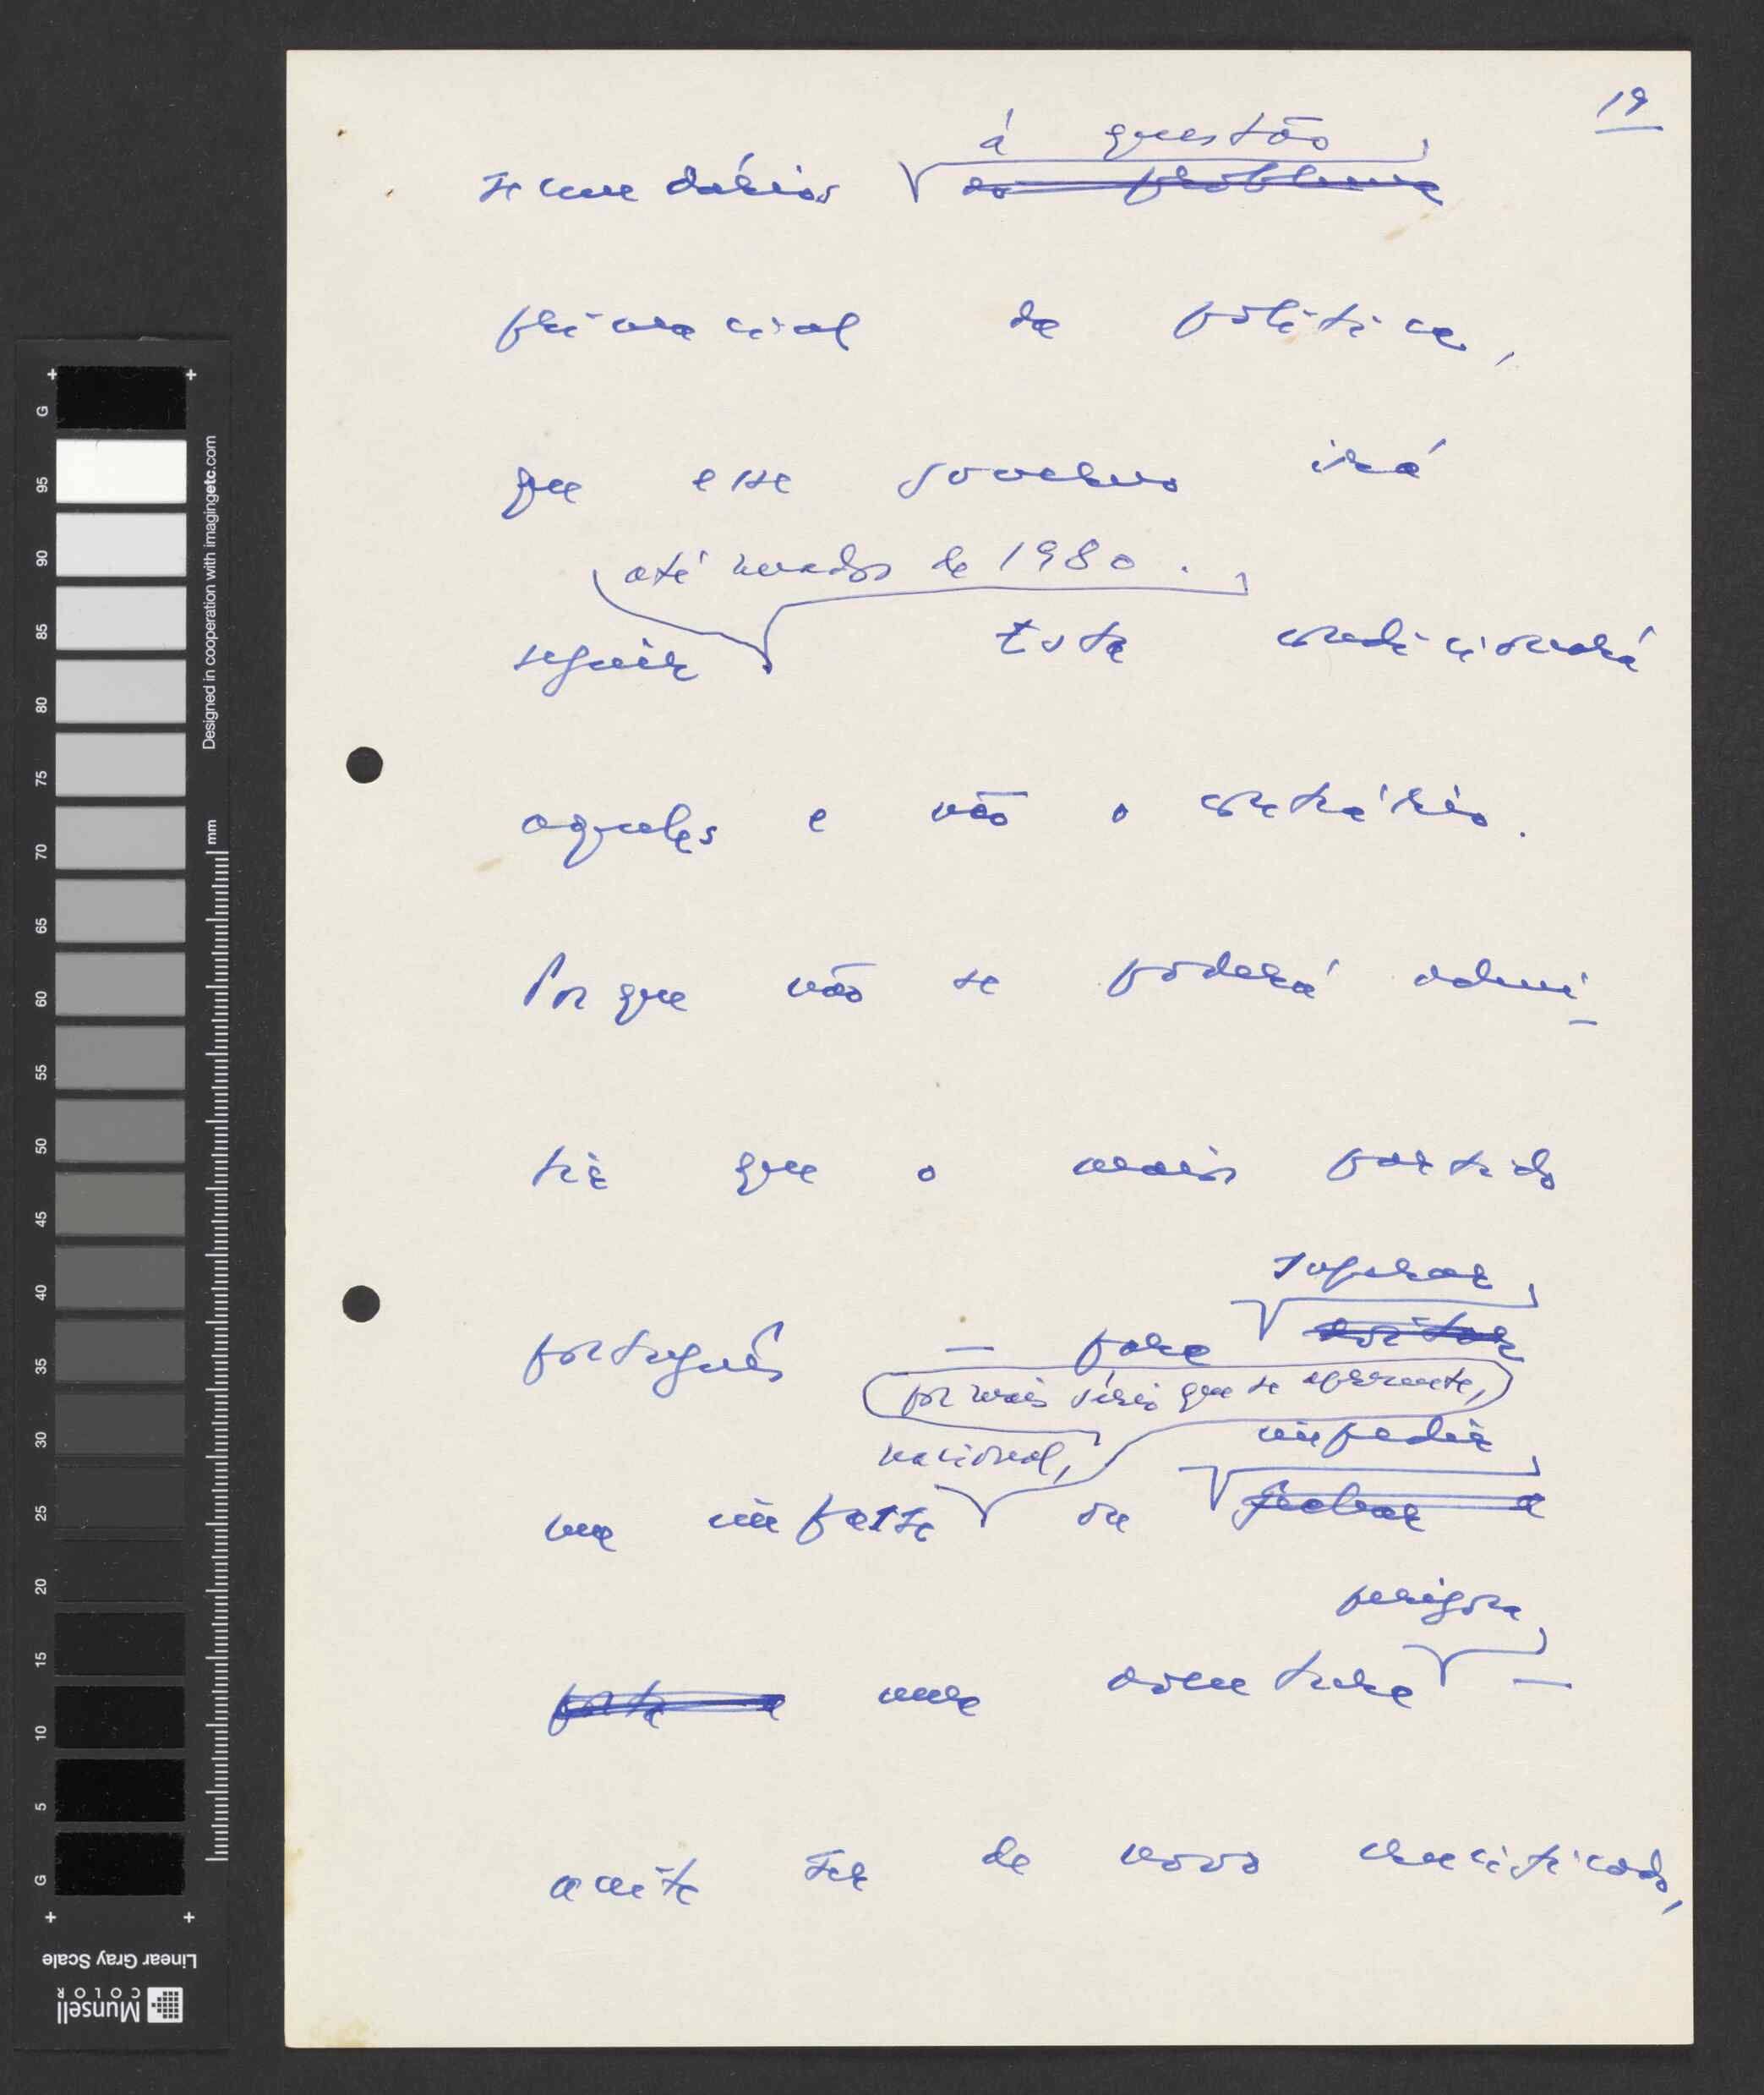 19
à questão
secundários ao problema
primacial da política,
que esse governo irá
até meados de 1980.
seguir Esta condicionará
aqueles e não o contrário.
Porque não se poderá admi-
tir que o maior partido
superar
português — para evitar
por mais sério que se apresente,
nacional, impedir
um impasse ou fechar a
perigosa
porta a uma aventura —
aceite ser de novo crucificado,
G
95
90
85
80
75
70
65
60
55
50
45
40
35
30
25
20
15
10
5
G
mm
Designed in cooperation with imagingetc.com
Linear Gray Scale
Munsell
COLOR